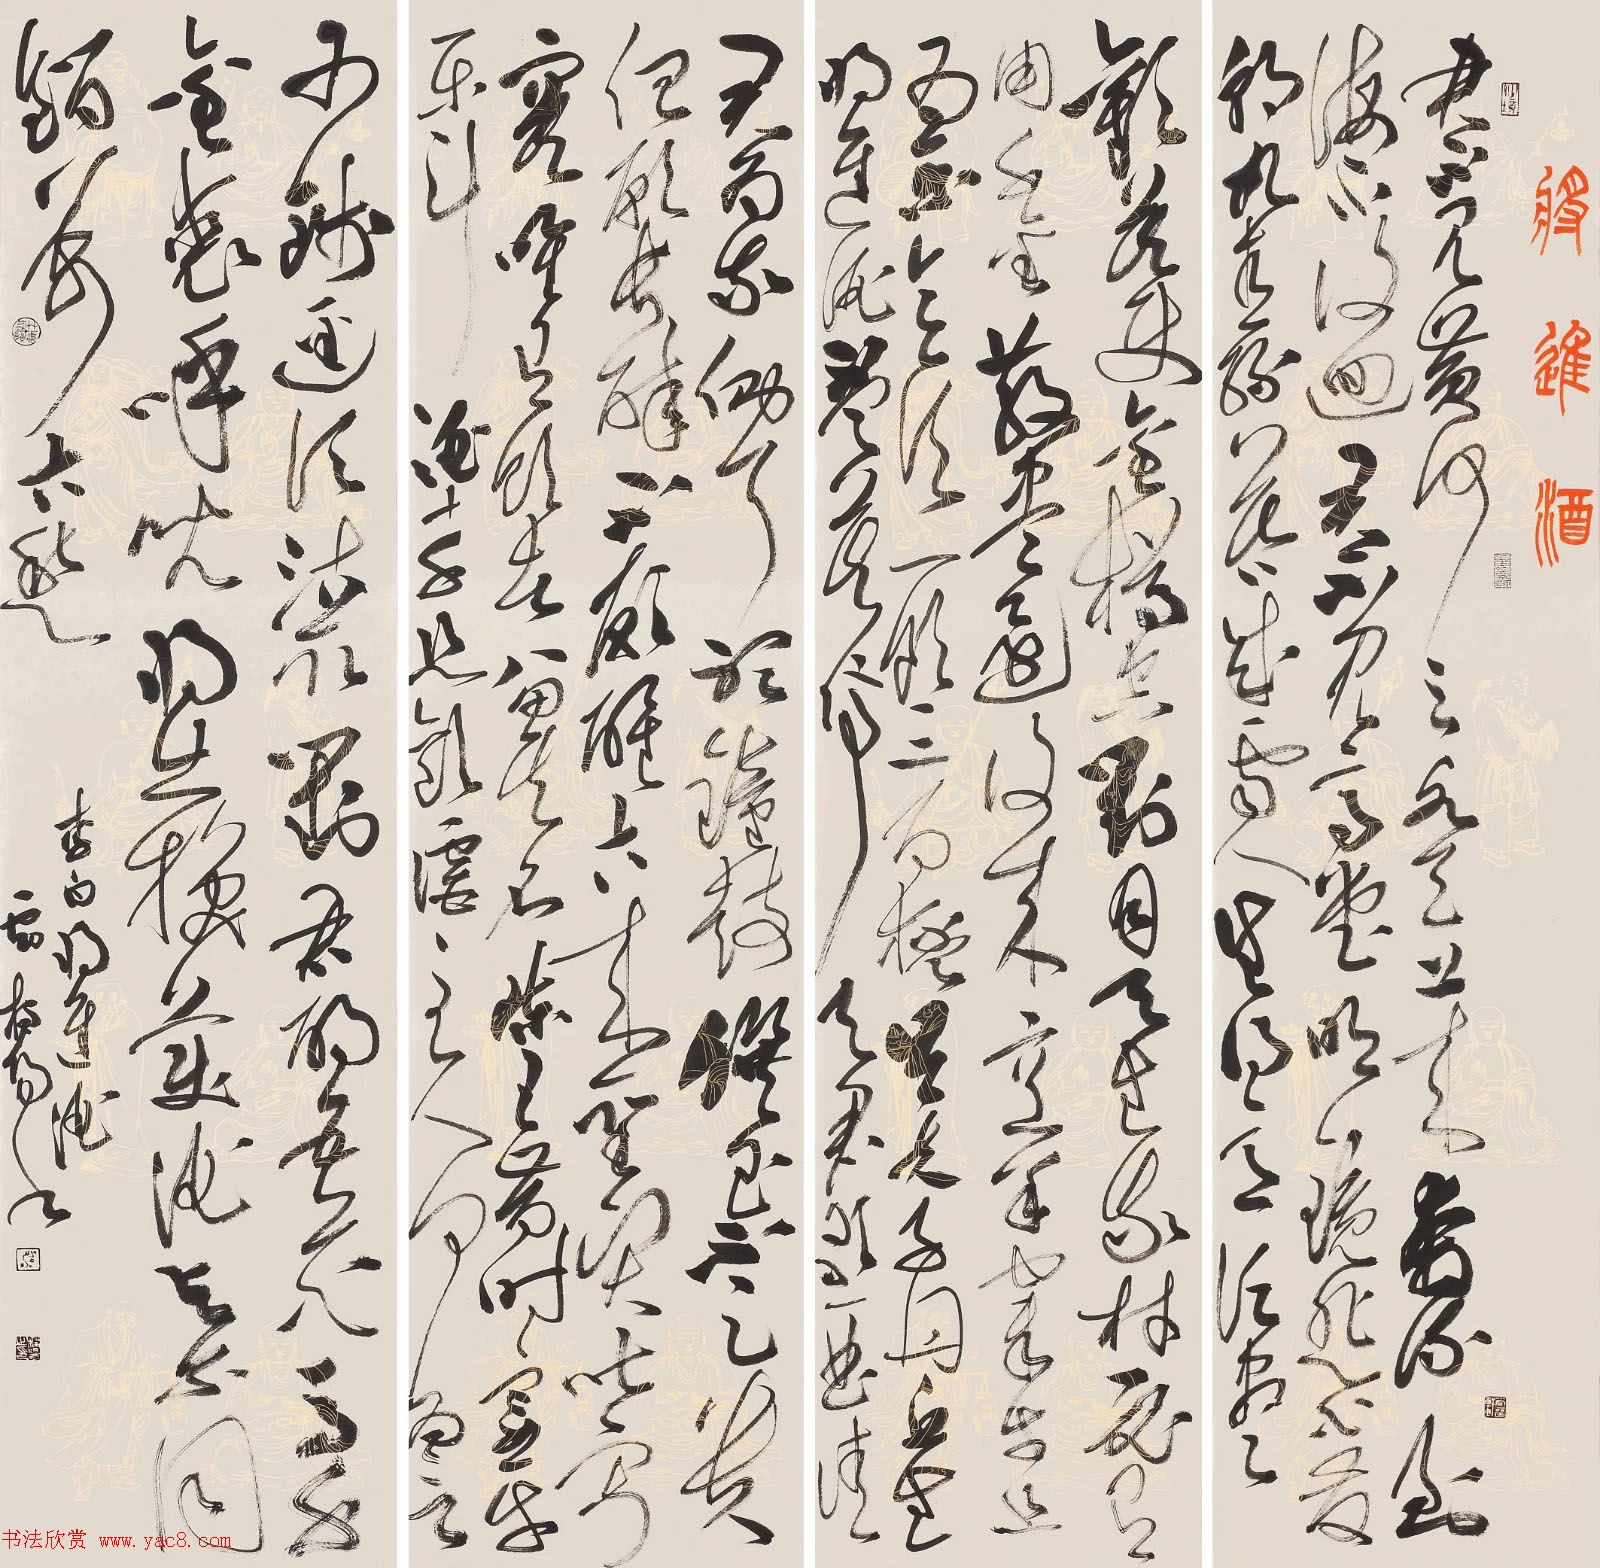 將進酒
君不見黃河之水天上來奔流到
海不復迴君不見高堂明鏡悲白髮
朝如青絲暮成雪人生得意須盡
歡莫使金樽空對月天生我材必有
用千金散盡還復來烹羊宰牛且
為樂會須一飲三百杯岑夫子丹丘生
將進酒杯莫停與君歌一曲請
君為我側耳聽鐘鼓饌玉不足貴
但願長醉不願醒古來聖賢皆寂
寞唯有飲者留其名陳王昔時宴平
樂斗酒十千恣歡謔主人何為言
少錢逕須沽取對君酌五花馬千
金裘呼兒將出換美酒與爾同
銷萬古愁
李白將進酒
书法欣赏 www.yac8.com